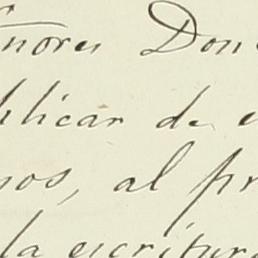 ñores Don
plicar de
sos, al pr
la escritura